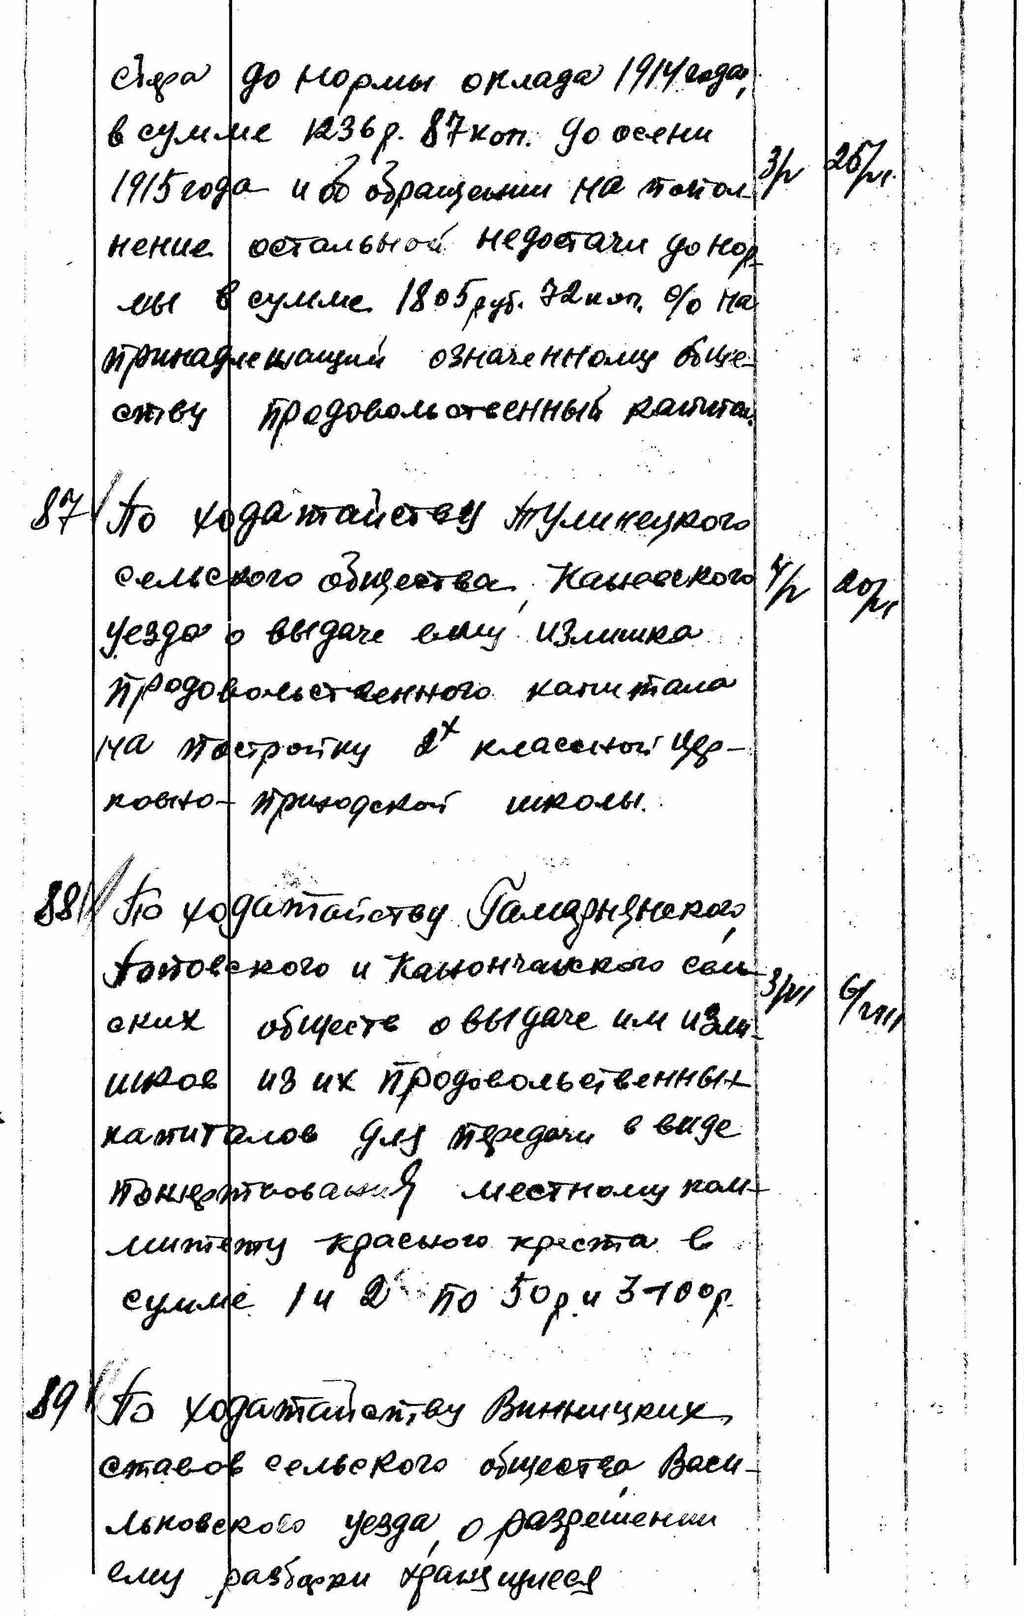 до нормы оклада 1914 года,
в сумме 1236 р. 87 коп. до осени
1915 года и об обращении на попол-
3/V 26/VI.
нение остальной недостачи до нор-
мы в сумме 1805 руб. 72 коп. % на
принадлежащий означенному обще-
ству продовольственный капитал.
87 По ходатайству Тулинецкого
сельского общества, Каневского
4/V 20/VI
уезда о выдаче ему излишка
продовольственного капитала
на постройку 2х классной цер-
ковно-приходской школы.
88 По ходатайству Гамарнянского,
Потовского и Канончанского сель-
3/VI 6/VIII
ских обществ о выдаче им изли-
шков из их продовольственных
капиталов для передачи в виде
пожертвования местному ком-
митету красного креста в
сумме 1 и 2 по 50 р. и 3-100 р.
89 По ходатайству Винницких
ставов сельского общества, Васи-
льковского уезда, о разрешении
ему разборки хранящиеся